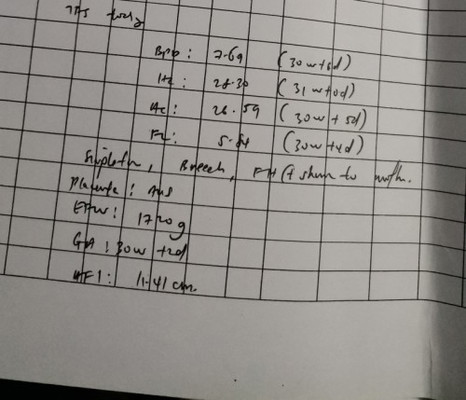 TAS
BPD: 7.69 (30w+6d)
HC: 28.30 (31w+0d)
AC: 26.59 (30w+5d)
FL: 5.84 (30w+4d)
Singleton, Breech, FH (+ shown to moth.
Placenta: Ant
EFW: 1720g
GA: 30w+2d
AFI: 11.41 cm.